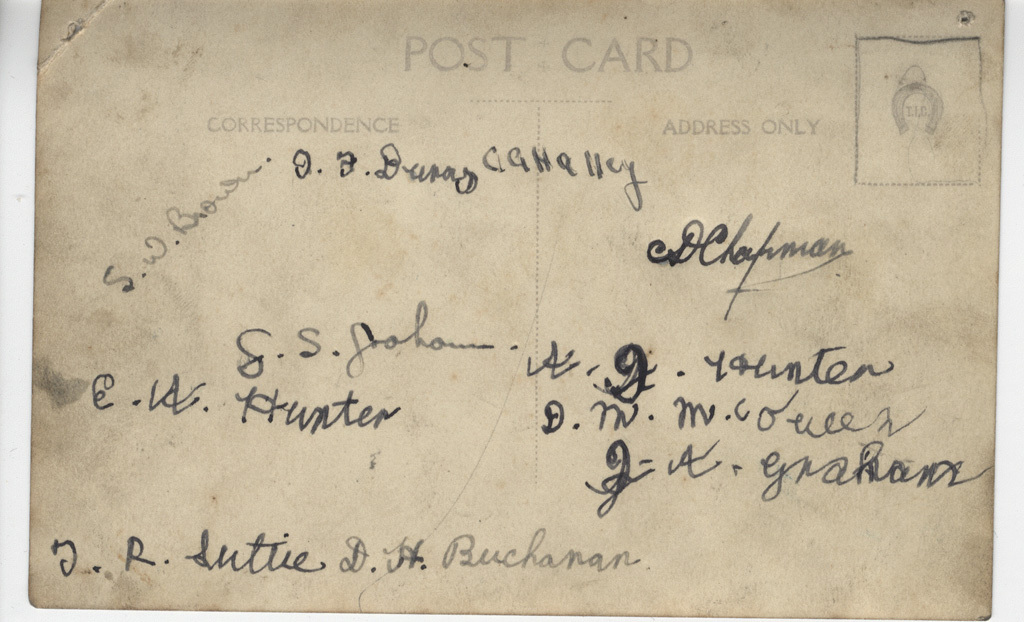 POST CARD
CORRESPONDENCE
ADDRESS ONLY
T.I.C.
S. W. Brown.
C A Halley
C D Chapman
G. S. Graham.
A. J. Hunter
E. W. Hunter
D. M. McQueen
J. A. Graham
T. R. Suttie
D. H. Buchanan.